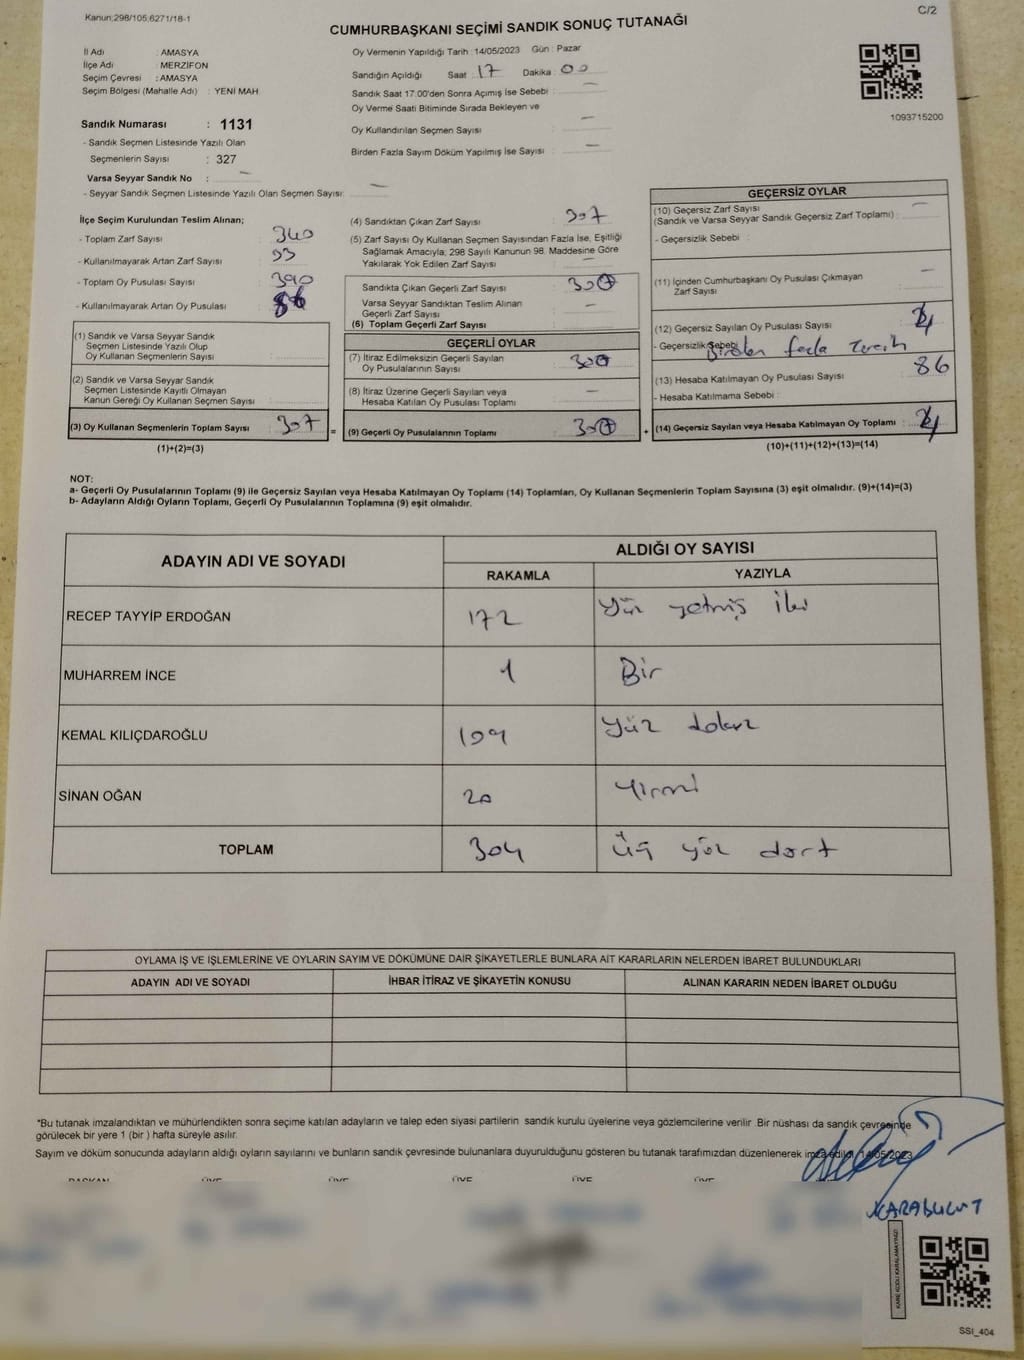 Kanun;298/105,6271/18-1
C/2
CUMHURBAŞKANI SEÇİMİ SANDIK SONUÇ TUTANAĞI
İl Adı : AMASYA
İlçe Adı : MERZİFON
Seçim Çevresi : AMASYA
Seçim Bölgesi (Mahalle Adı) : YENİ MAH.
Oy Vermenin Yapıldığı Tarih : 14/05/2023 Gün : Pazar
Sandığın Açıldığı Saat 17 Dakika : 00
Sandık Saat 17:00'den Sonra Açımış İse Sebebi : —
Oy Verme Saati Bitiminde Sırada Bekleyen ve
Oy Kullandırılan Seçmen Sayısı : —
Birden Fazla Sayım Döküm Yapılmış İse Sayısı : —
1093715200
Sandık Numarası : 1131
- Sandık Seçmen Listesinde Yazılı Olan
Seçmenlerin Sayısı : 327
Varsa Seyyar Sandık No : —
- Seyyar Sandık Seçmen Listesinde Yazılı Olan Seçmen Sayısı: —
İlçe Seçim Kurulundan Teslim Alınan;
- Toplam Zarf Sayısı : 340
- Kullanılmayarak Artan Zarf Sayısı : 33
- Toplam Oy Pusulası Sayısı : 390
- Kullanılmayarak Artan Oy Pusulası : 86
(1) Sandık ve Varsa Seyyar Sandık
Seçmen Listesinde Yazılı Olup
Oy Kullanan Seçmenlerin Sayısı :
(2) Sandık ve Varsa Seyyar Sandık
Seçmen Listesinde Kayıtlı Olmayan
Kanun Gereği Oy Kullanan Seçmen Sayısı :
(3) Oy Kullanan Seçmenlerin Toplam Sayısı : 307
(1)+(2)=(3)
(4) Sandıktan Çıkan Zarf Sayısı : 307
(5) Zarf Sayısı Oy Kullanan Seçmen Sayısından Fazla İse, Eşitliği
Sağlamak Amacıyla; 298 Sayılı Kanunun 98. Maddesine Göre
Yakılarak Yok Edilen Zarf Sayısı : —
Sandıkta Çıkan Geçerli Zarf Sayısı : 307
Varsa Seyyar Sandıktan Teslim Alınan
Geçerli Zarf Sayısı : —
(6) Toplam Geçerli Zarf Sayısı :
GEÇERLİ OYLAR
(7) İtiraz Edilmeksizin Geçerli Sayılan
Oy Pusulalarının Sayısı :
(8) İtiraz Üzerine Geçerli Sayılan veya
Hesaba Katılan Oy Pusulası Toplamı : —
(9) Geçerli Oy Pusulalarının Toplamı :
GEÇERSİZ OYLAR
(10) Geçersiz Zarf Sayısı : —
(Sandık ve Varsa Seyyar Sandık Geçersiz Zarf Toplamı)
- Geçersizlik Sebebi :
(11) İçinden Cumhurbaşkanı Oy Pusulası Çıkmayan
Zarf Sayısı : —
(12) Geçersiz Sayılan Oy Pusulası Sayısı :
- Geçersizlik Sebebi : Birden fazla tercih
(13) Hesaba Katılmayan Oy Pusulası Sayısı : 86
- Hesaba Katılmama Sebebi :
(14) Geçersiz Sayılan veya Hesaba Katılmayan Oy Toplamı :
(10)+(11)+(12)+(13)=(14)
NOT:
a- Geçerli Oy Pusulalarının Toplamı (9) ile Geçersiz Sayılan veya Hesaba Katılmayan Oy Toplamı (14) Toplamları, Oy Kullanan Seçmenlerin Toplam Sayısına (3) eşit olmalıdır. (9)+(14)=(3)
b- Adayların Aldığı Oyların Toplamı, Geçerli Oy Pusulalarının Toplamına (9) eşit olmalıdır.
ADAYIN ADI VE SOYADI ALDIĞI OY SAYISI
RAKAMLA YAZIYLA
RECEP TAYYİP ERDOĞAN 172 Yüz yetmiş iki
MUHARREM İNCE 1 Bir
KEMAL KILIÇDAROĞLU 109 Yüz dokuz
SİNAN OĞAN 20 Yirmi
TOPLAM 304 üç yüz dört
OYLAMA İŞ VE İŞLEMLERİNE VE OYLARIN SAYIM VE DÖKÜMÜNE DAİR ŞİKAYETLERLE BUNLARA AİT KARARLARIN NELERDEN İBARET BULUNDUKLARI
ADAYIN ADI VE SOYADI İHBAR İTİRAZ VE ŞİKAYETİN KONUSU ALINAN KARARIN NEDEN İBARET OLDUĞU
*Bu tutanak imzalandıktan ve mühürlendikten sonra seçime katılan adayların ve talep eden siyasi partilerin sandık kurulu üyelerine veya gözlemcilerine verilir. Bir nüshası da sandık çevresinde
görülecek bir yere 1 (bir ) hafta süreyle asılır.
Sayım ve döküm sonucunda adayların aldığı oyların sayılarını ve bunların sandık çevresinde bulunanlara duyurulduğunu gösteren bu tutanak tarafımızdan düzenlenerek imza edildi. 14/05/2023
BAŞKAN ÜYE ÜYE ÜYE ÜYE ÜYE
KARABULUT
KARE KODU KARALAMAYINIZ!
SSI_404